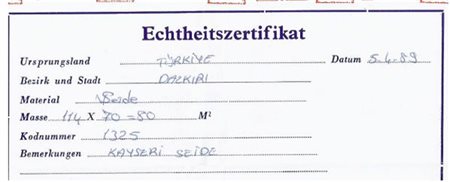 Echtheitszertifikat
Ursprungsland TÜRKİYE Datum 5.4.89
Bezirk und Stadt DAZKIRI
Material Seide
Masse 114 X 70 = 80 M²
Kodnummer 1325
Bemerkungen KAYSERI SEIDE